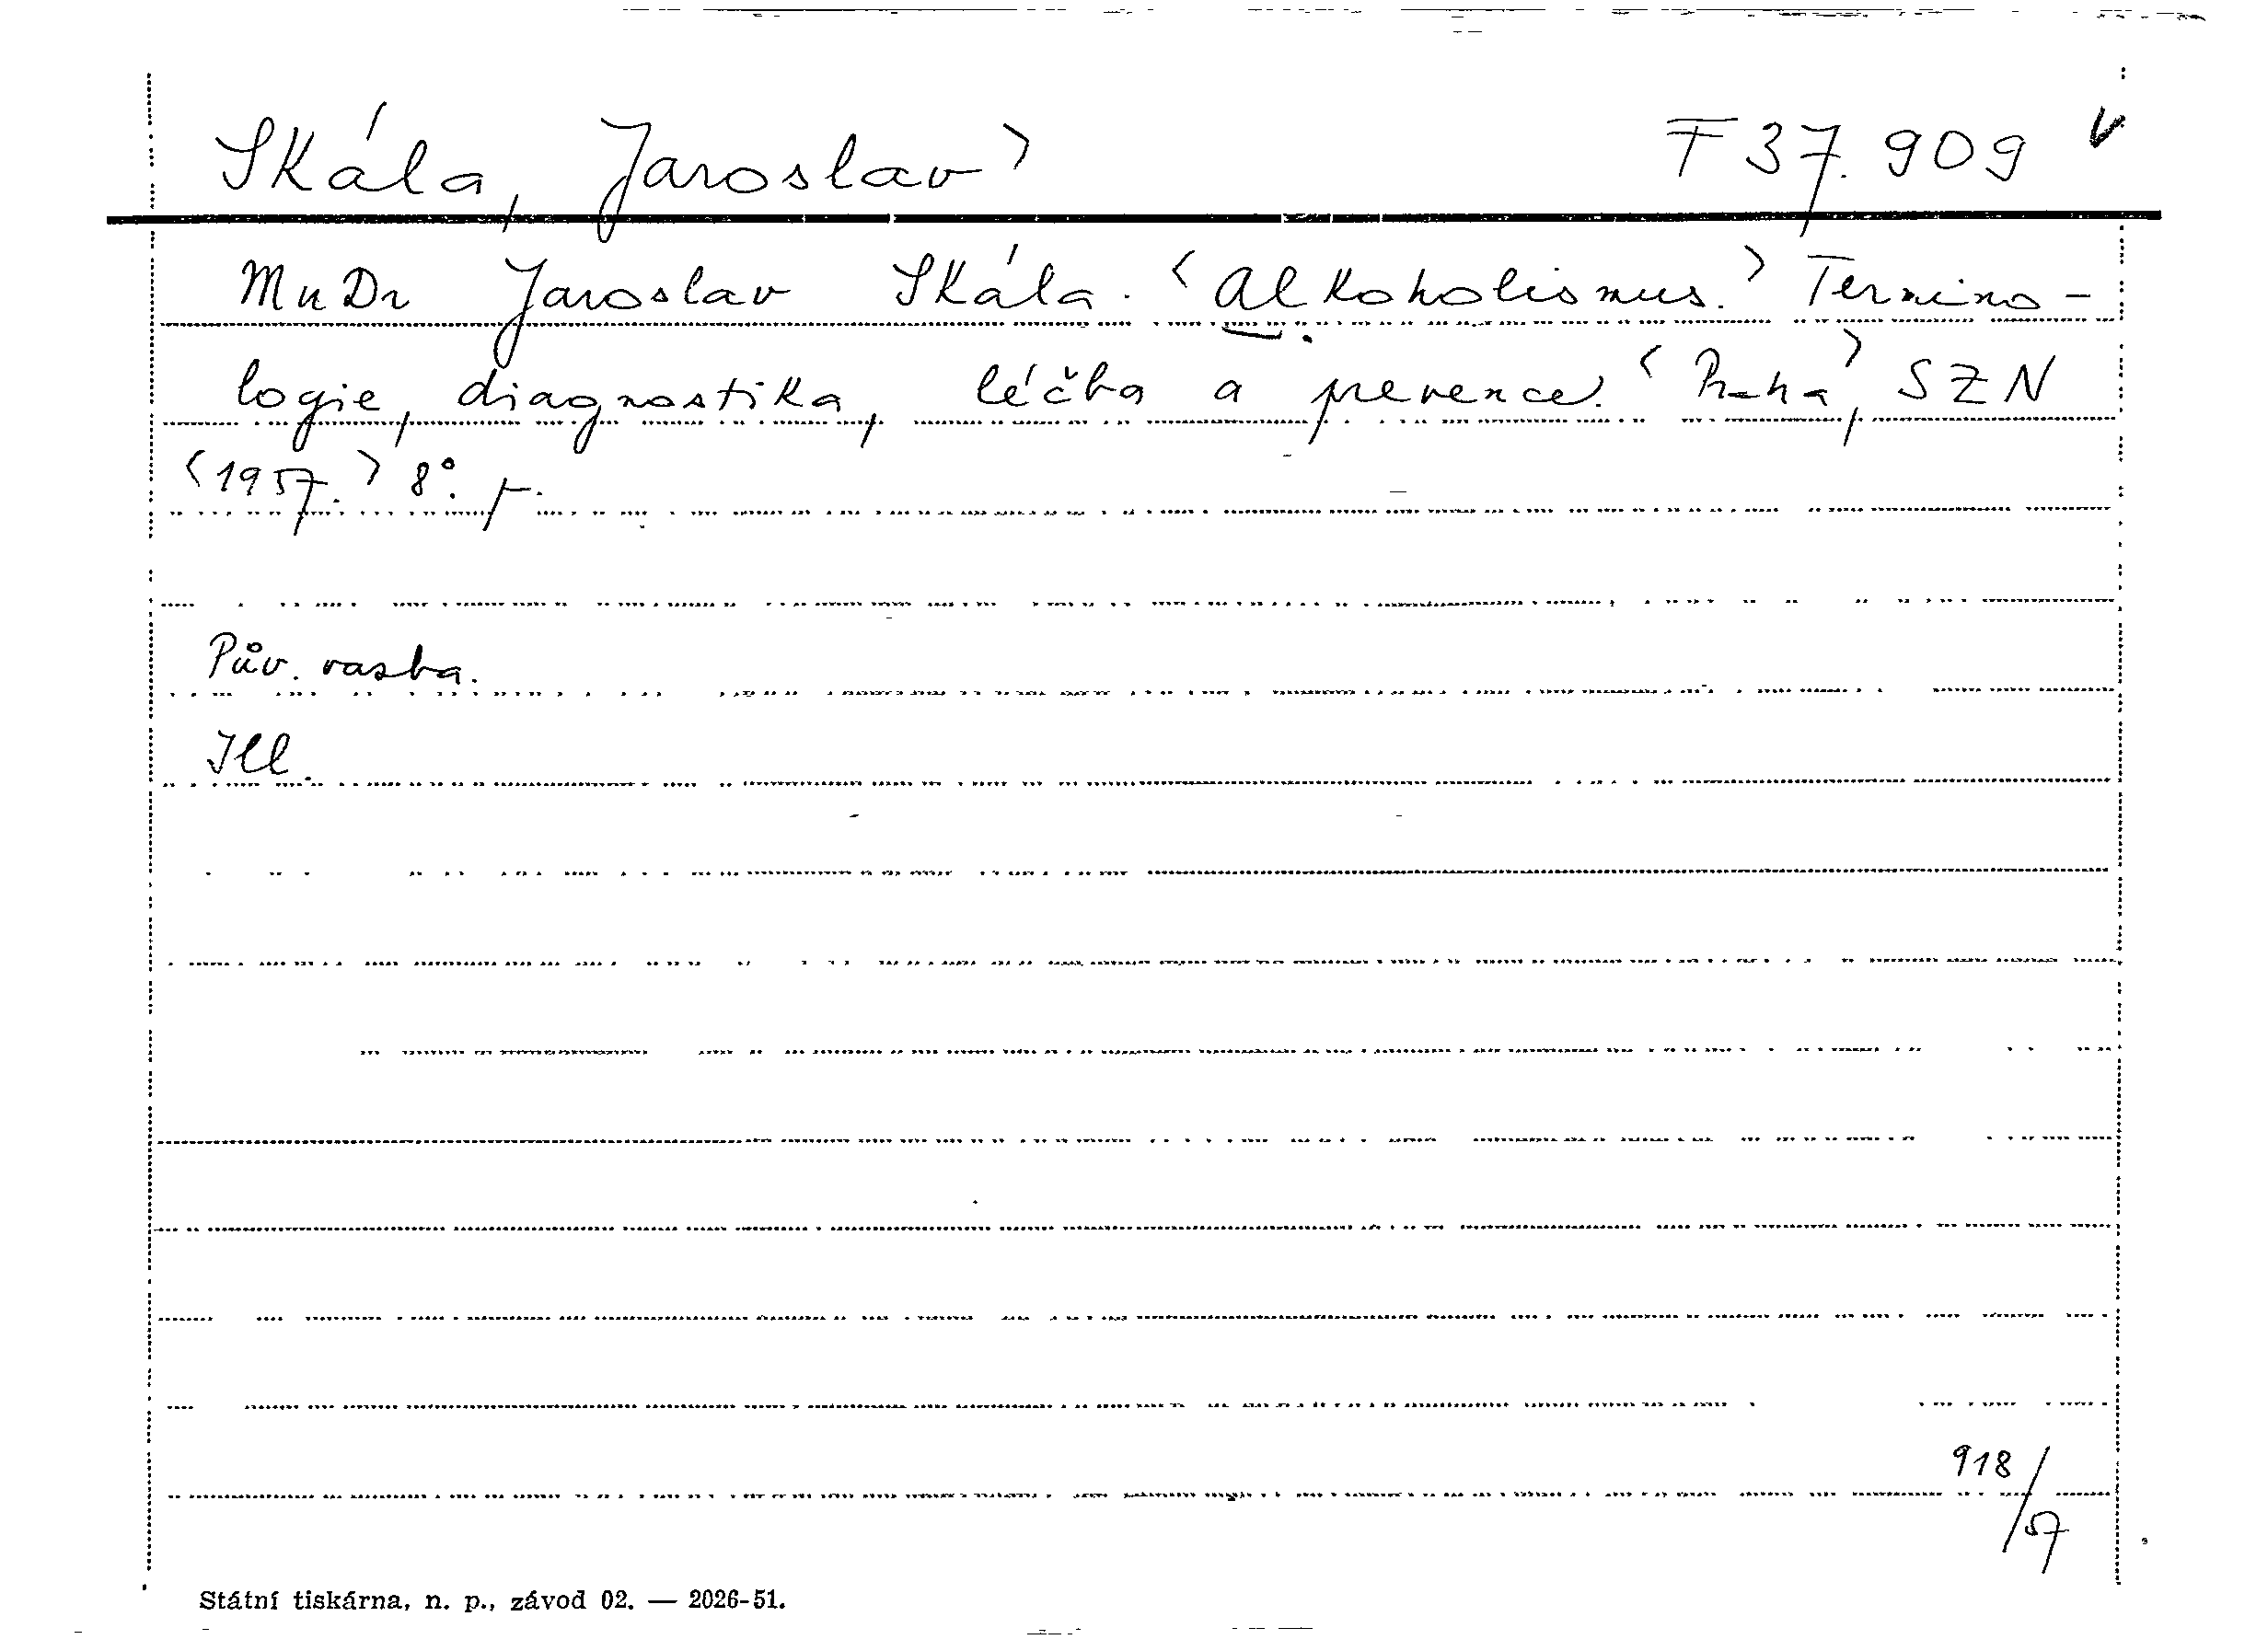 Skála, Jaroslav> F 37.909 v
MuDr Jaroslav Skála. <Alkoholismus.> Termino-
logie, diagnostika, léčba a prevence. <Praha>, SZN
<1957.> 8°.
Pův. vazba.
Ill.
918/57
Státní tiskárna, n. p., závod 02. — 2026-51.